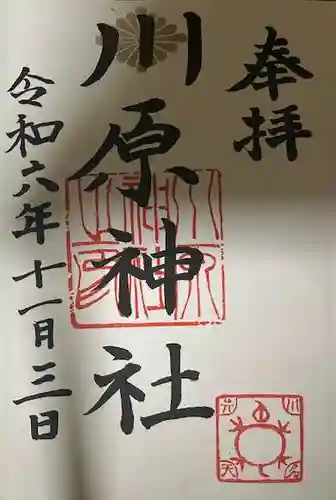 奉拝
川原神社
令和六年十一月三日